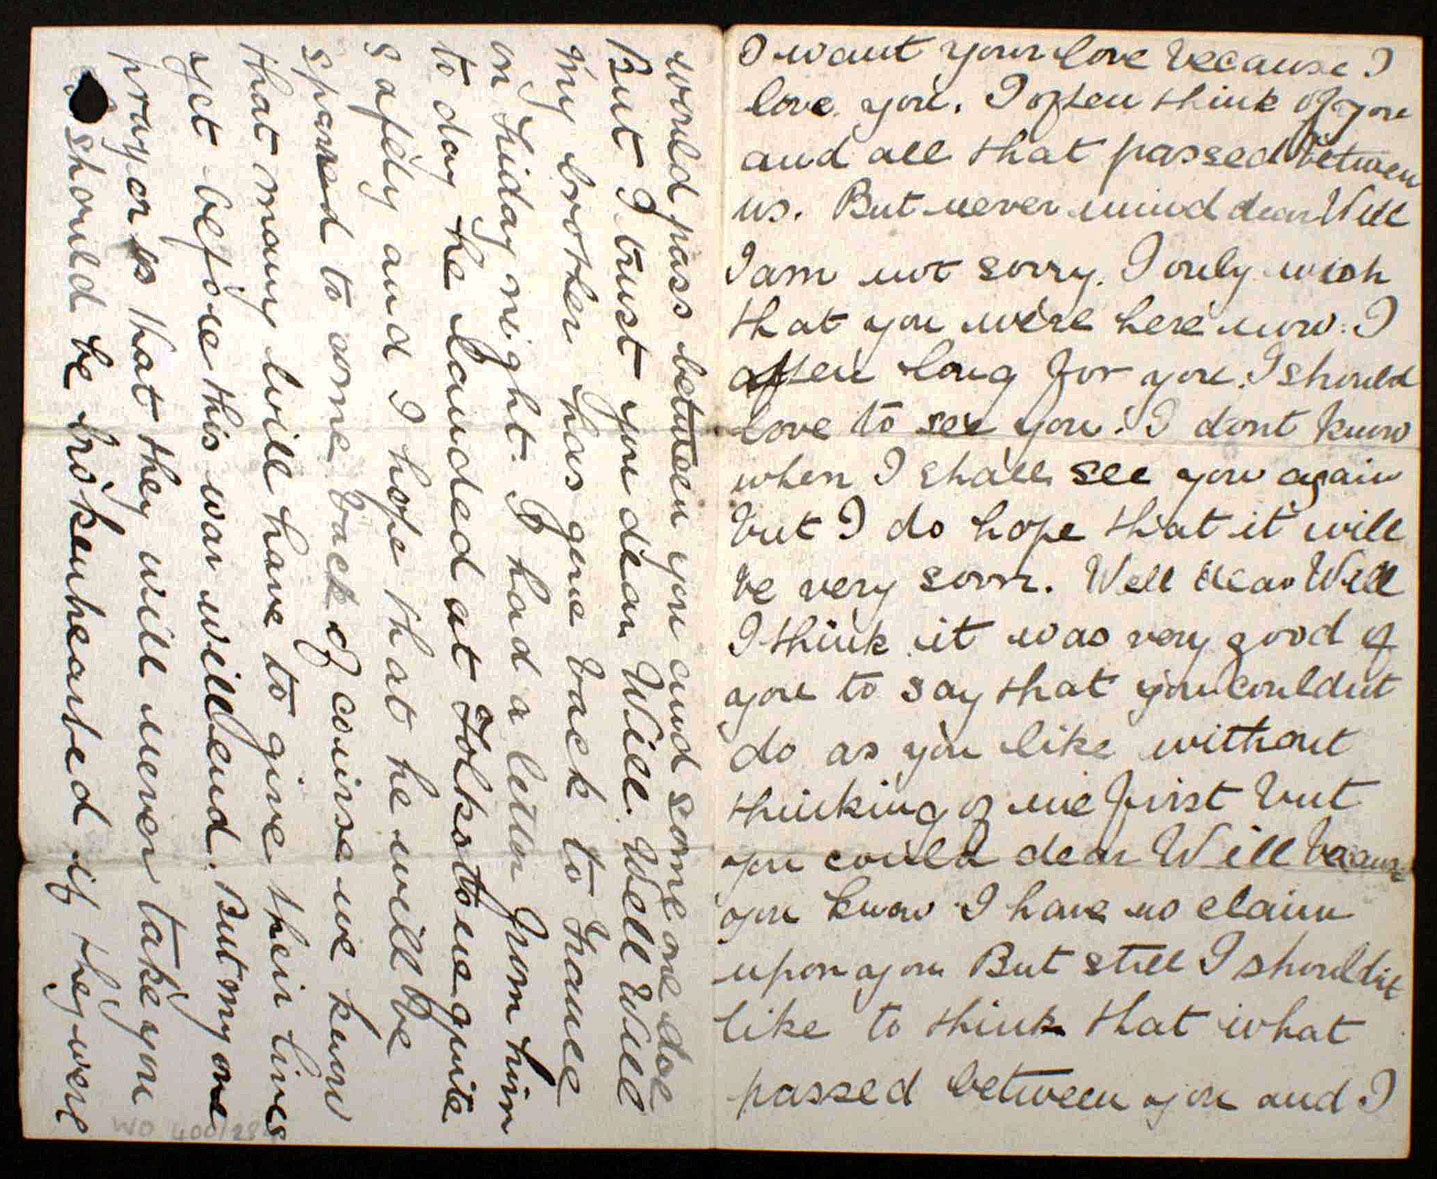 I want your love because I
love you. I often think of you
and all that passed between
us. But never mind dear Will
I am not sorry. I only wish
that you were here now. I
often long for you. I should
love to see you. I dont know
when I shall see you again
but I do hope that it will
be very soon. Well dear Will
I think it was very good of
you to say that you couldnt
do as you like without
thinking of me first but
you could dear Will because
you know I have no claim
upon you But still I shouldnt
like to think that what
passed between you and I
would pass between you and some one else
But I trust you dear Will. Well Will
my brother has gone back to France
on friday night. I had a letter from him
to day he landed at Folkstone quite
safely and I hope that he will be
spared to come back of course we know
that many will have to give their lives
yet before this war will end. But my one
prayer is that they will never take you
I should be brokenhearted if they were
WO 400/28